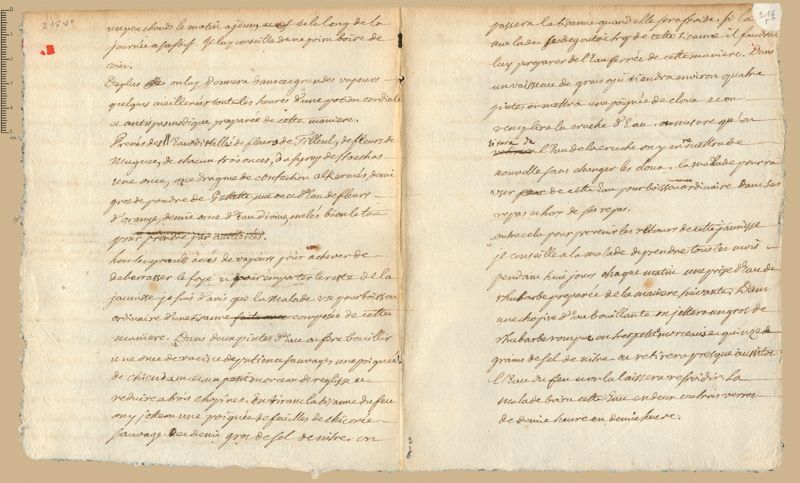 un peu chaud le matin a jeun et le long de la
journée a sa soif. Il luy conseille de ne point boire de
vin.
De plus on luy donnera dans ces grandes vapeurs
quelques cueillerées toutes les heures d'une potion cordiale
et antispasmodique preparée de cette maniere.
Prenés des Eaux distillées de fleurs de Tilleul, de fleurs de
Muguet, de chacun trois onces, du syrop de Stoechas
une once, une dragme de confection alkermés, demi
gros de poudre de Guttette, une once d'Eau de fleurs
d'orange, demie once d'Eau divine, melés bien le tout
pour prendre par cueillerées.
hors les grands accés de vapeurs pour achever de
debarasser le foye et pour emporter le reste de la
jaunisse je suis d'avis que la Malade use pour boisson
ordinaire d'une tisanne composée de cette
maniere. Dans deux pintes d'Eau on fera bouillir
une once de racine de patience sauvage, une poignée
de chiendent et un petit morceau de reglisse
reduire a trois chopines. En tirant la tisanne du feu
on y jettera une poignée de feuilles de chicorée
sauvage et demi gros de sel de nitre. on
215 v°
216
r°
passera la tisanne quand elle sera froide. Si la
malade se degoutoit trop de cette tisanne il faudroit
luy preparer de l'Eau ferrée de cette maniere. Dans
un vaisseau de grais qui tiendra environ quatre
pintes on mettra une poignée de cloux et on
remplira la cruche d'Eau. a mesure qu'on
tirera de
l'Eau de la cruche on y en remettra de
nouvelle sans changer les cloux. la malade pourra
user de cette Eau pour boisson ordinaire dans ses
repas et hors de ses repas.
outre cela pour prevenir les retours de cette jaunisse
je conseille a la malade de prendre tous les mois
pendant huit jours chaque matin une prise d'Eau de
rhubarbe preparée de la maniere suivante. Dans
une chopine d'Eau bouillante on jettera un gros de
rhubarbe rompue en tres petits morceaux et quinze
grains de sel de nitre on retirera presque aussitot
l'Eau du feu et on la laissera refroidir. La
malade boira cette Eau en deux ou trois verres
de demie heure en demie heure.